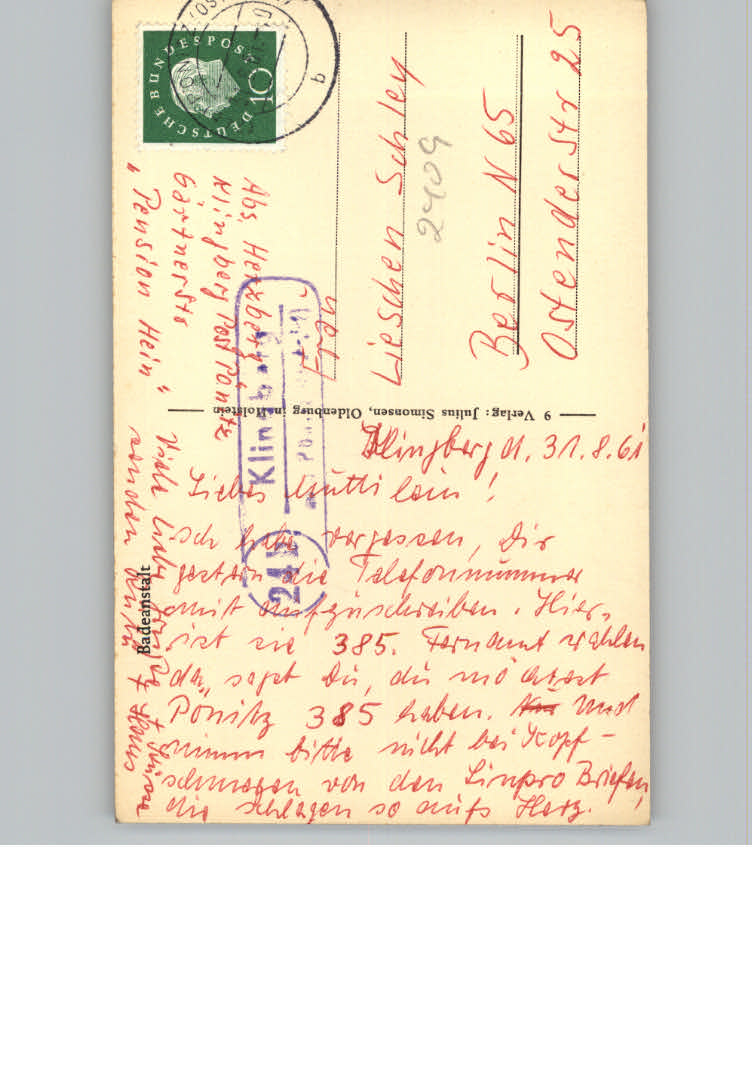 DEUTSCHE BUNDESPOST
10
b
Abs. Herzberg
Klingberg Post Pönitz
Gärtnerstr
"Pension Hein"
Lieschen Schley
2409
Berlin N 65
Ostender Str 25
24b
Klingberg
9 Verlag: Julius Simonsen, Oldenburg in Holstein
Badeanstalt
Klingberg d. 31.8.61
Liebes Muttilein!
Ich habe vergessen, Dir
gestern die Telefonnummer
mit aufzuschreiben. Hier
ist sie 385. Fernamt wählen
da, sagst Du, du möchtest
Pönitz 385 haben. Und
nimm bitte nicht bei Kopf-
schmerzen von den Briefen,
die schlagen so aufs Herz.
Viele liebe Grüße
senden